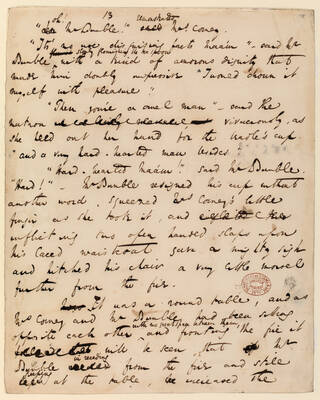 13
"oh, Mr Bumble." Mrs Corney.
"It's no use disguising facts ma'am" — said Mr
Bumble, slowly flourishing the tea spoon
with a kind of amorous dignity that
made him doubly impressive "I would drown it
myself with pleasure"
"Then you're a cruel man" — said the
matron vivaciously, as
she held out her hand for the beadle's cup
"and a very hard-hearted man besides."
"Hard-hearted ma'am" said Mr Bumble.
"Hard!" — Mr Bumble resigned his cup without
another word, squeezed Mrs Corney's little
finger as she took it, and
inflicting two open handed slaps upon
his laced waistcoat gave a mighty sigh
and hitched his chair a very little morsel
further from the fire.
It was a round table, and as
Mrs Corney and Mr Bumble had been sitting
opposite each other with no great space between them
and fronting the fire it
will be seen that Mr
Bumble in receding from the fire and still
keeping at the table increased the